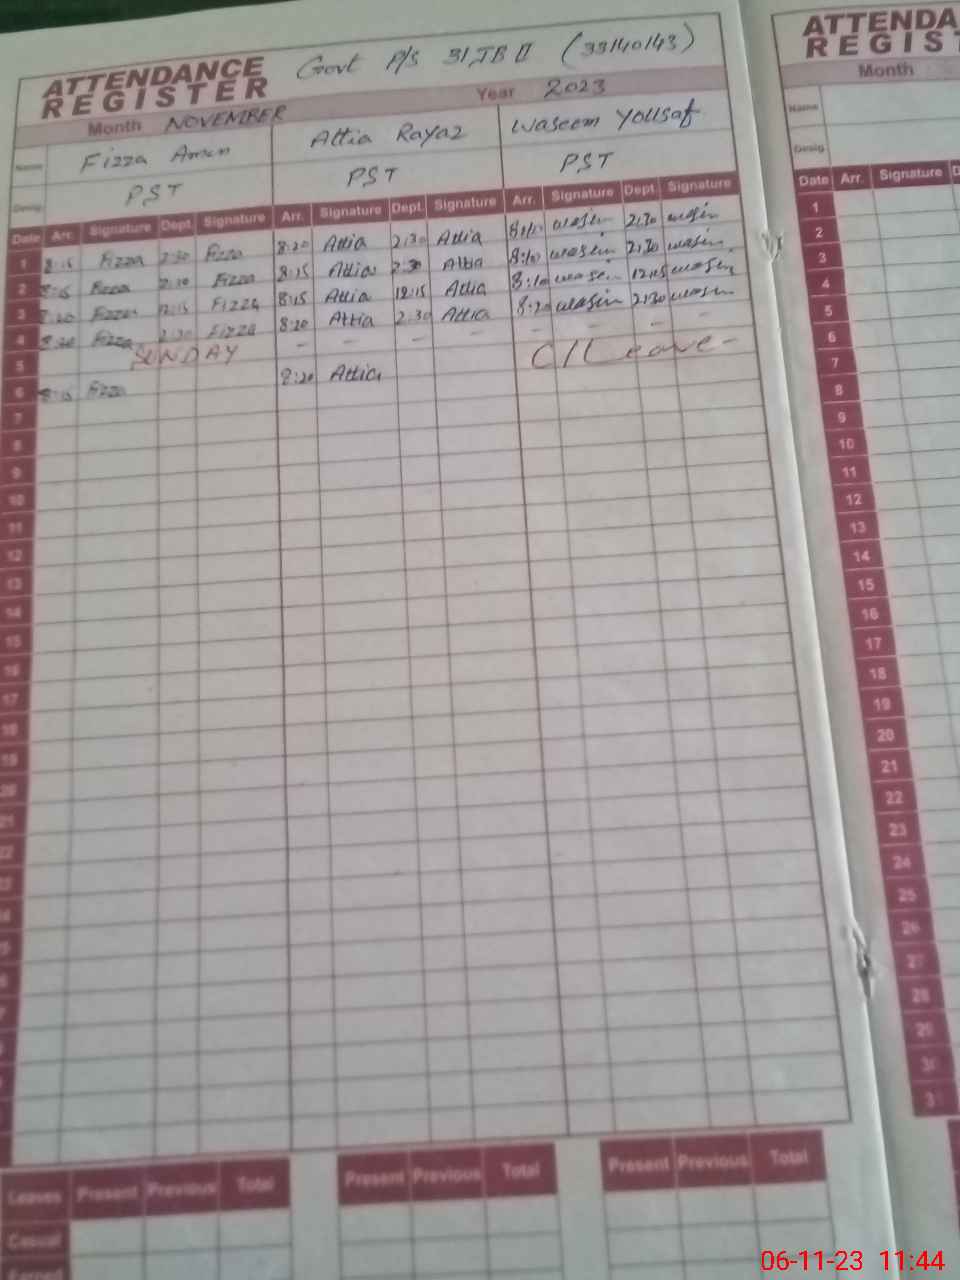 ATTENDANCE
REGISTER
Govt P/S 31 JB II (33140143)
Month NOVEMBER Year 2023
Name Fizza Attia Rayaz Waseem Yousaf
Desig. PST PST PST
Date Arr. Signature Dept. Signature Arr. Signature Dept. Signature Arr. Signature Dept. Signature
1 8:15 Fizza 2:30 Fizza 8:20 Attia 2:30 Attia 8:10 wasim 2:30 wasim
2 8:15 Fizza 2:30 Fizza 8:15 Attia 2:30 Attia 8:10 wasim 2:30 wasim
3 8:20 Fizza 12:15 Fizza 8:15 Attia 12:15 Attia 8:10 wasim 12:15 wasim
4 8:20 Fizza 2:30 Fizza 8:20 Attia 2:30 Attia 8:20 wasim 2:30 wasim
5 SUNDAY - - - - - - - -
6 8:15 Fizza 8:20 Attia C/Leave -
7
8
9
10
11
12
13
14
15
16
17
18
19
20
21
22
Present Previous Total
Leaves Present Previous Total Present Previous Total
Casual
Earned
ATTENDA
REGIST
Month
Name
Desig.
Date Arr. Signature D
1
2
3
4
5
6
7
8
9
10
11
12
13
14
15
16
17
18
19
20
21
22
23
24
25
26
27
28
29
30
3
06-11-23 11:44